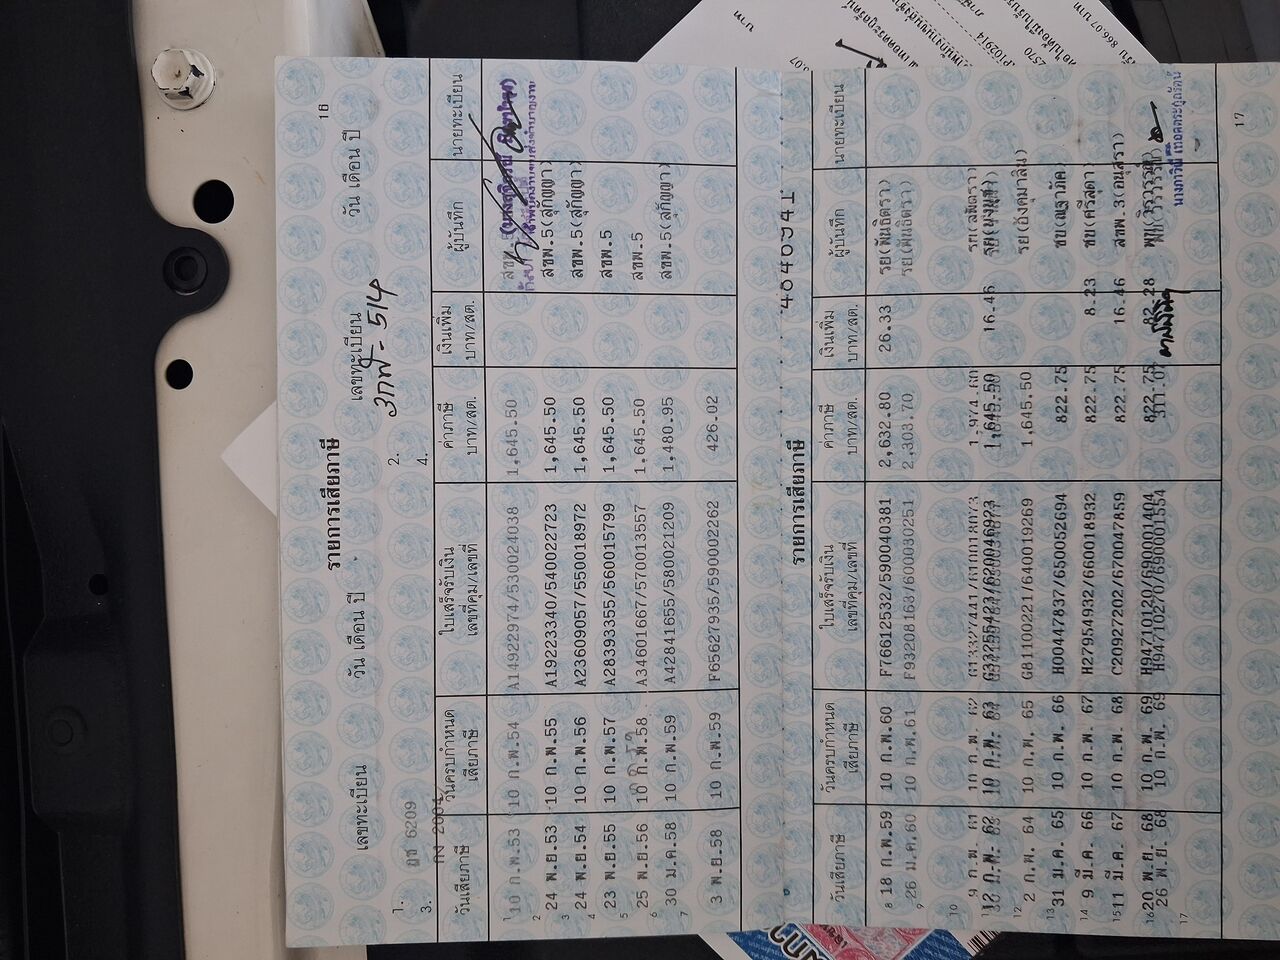 16
รายการเสียภาษี
เลขทะเบียน วัน เดือน ปี เลขทะเบียน วัน เดือน ปี
1. ฌช 6209 2. 3กฬ-514
3. 4.
วันเสียภาษี วันครบกำหนดเสียภาษี ใบเสร็จรับเงิน เลขที่คุม/เลขที่ ค่าภาษี บาท/สต. เงินเพิ่ม บาท/สต. ผู้บันทึก นายทะเบียน
1 10 ก.พ.53 10 ก.พ.54 A14922974/530024038 1,645.50 สขพ.5
2 24 พ.ย.53 10 ก.พ.55 A19223340/540022723 1,645.50 สขพ.5(สุกัญญา)
3 24 พ.ย.54 10 ก.พ.56 A23609057/550018972 1,645.50 สขพ.5(สุกัญญา)
4 23 พ.ย.55 10 ก.พ.57 A28393355/560015799 1,645.50 สขพ.5
5 25 พ.ย.56 10 ก.พ.58 A34601667/570013557 1,645.50 สขพ.5
6 30 ม.ค.58 10 ก.พ.59 A42841655/580021209 1,480.95 สขพ.5(สุกัญญา)
7 3 พ.ย.58 10 ก.พ.59 F65627935/590002262 426.02
4040941
รายการเสียภาษี
วันเสียภาษี วันครบกำหนดเสียภาษี ใบเสร็จรับเงิน เลขที่คุม/เลขที่ ค่าภาษี บาท/สต. เงินเพิ่ม บาท/สต. ผู้บันทึก นายทะเบียน
8 18 ก.พ.59 10 ก.พ.60 F76612532/590040381 2,632.80 26.33 รย(พันธิตรา)
9 26 ม.ค.60 10 ก.พ.61 F93208163/600030251 2,303.70 รย(พันธิตรา)
10 9 ก.พ. 61 10 ก.พ. 62 1,974.60
12 ก.พ. 62 10 ก.พ. 63 1,645.50 16.46
12 2 ก.พ. 64 10 ก.พ. 65 G81100221/640019269 1,645.50 รย(อังคุมาลิน)
13 31 ม.ค. 65 10 ก.พ. 66 H00447837/650052694 822.75
14 9 มี.ค. 66 10 ก.พ. 67 H27954932/660018932 822.75 8.23 ชบ(ศรีสุดา)
15 11 มี.ค. 67 10 ก.พ. 68 C20927202/670047859 822.75 16.46 สขพ.3(อนุสรา)
16 20 พ.ย. 68 10 ก.พ. 69 H94710120/690001404 822.75 82.28
26 พ.ย. 68 10 ก.พ. 69 H94710270/690001554 311.07
17
17